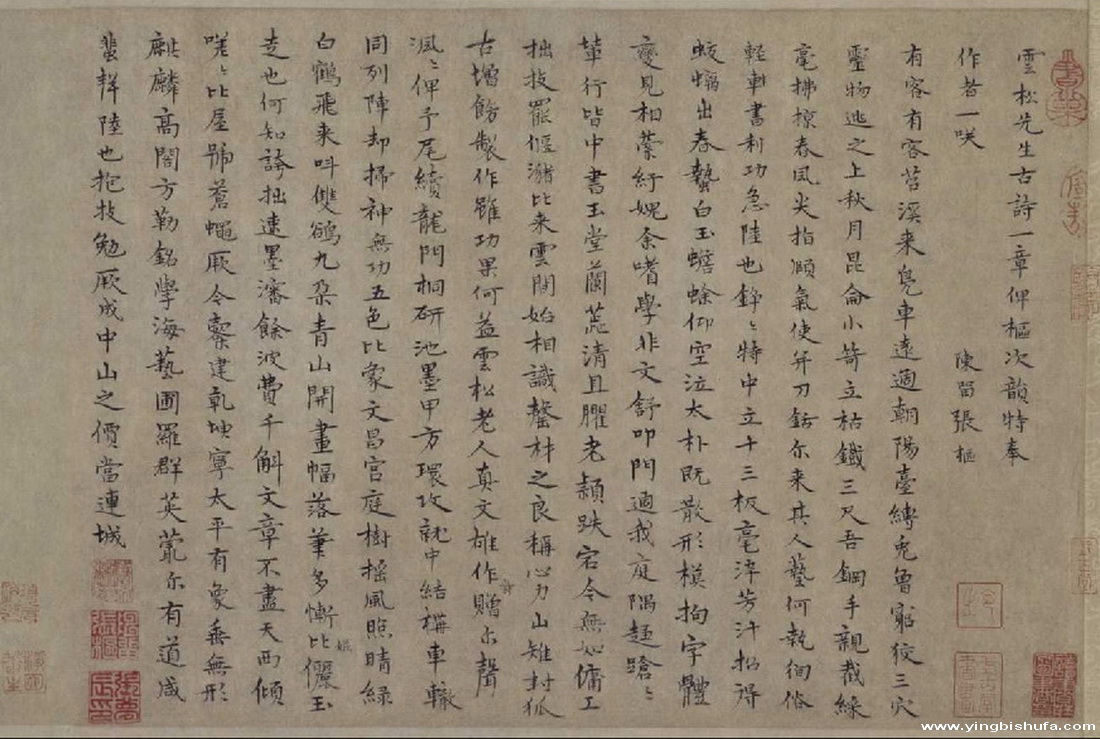 雲松先生古詩一章俾樞次韻特奉
作者一咲 陳留張樞
有客有客苕溪来鳬車遠適朝陽臺縛兎魯窮狡三穴
靈物逃之上秋月昆侖小笴立枯鐵三尺吾鋼手親截綵
毫拂掠春風尖指顥氣使并刀銛尔来其人藝何執徇俗
輕車書利功急陸也錚〻特中立十三板毫淬芳汁招得
蛟蝠出春蟄白玉蟾蜍仰空泣太朴既散形模拘字體
變見相縈紆媿余嗜學非文舒叩門過我庭隅趦蹌〻
輩行皆中書玉堂蘭蕋清且臞老穎跌宕今無如傭工
拙技罷偃瀦比来雲間始相識罄材之良稱心力山雉對狐
古增飭製作雖功果何益雲松老人真文雄作贈尔聲
渢〻俾予尾續龍門桐研池墨甲方環攻就中結構車轍
同列陣却掃神無功五色比象文昌宫庭樹搖風照晴緑
白鶴飛来叫雙鵒九朶青山開畫幅落筆多慚比儷玉
走也何知誇拙速墨瀋餘波費千斛文章不盡天西傾
嘆〻比屋號蒼蠅厥今寮建乹坤寧太平有象垂無形
麒麟高閣方勒銘學海藝圃羅群英蕭尔有道咸
蜚聲陸也抱技勉厥成中山之價當連城
www.yingbishufa.com